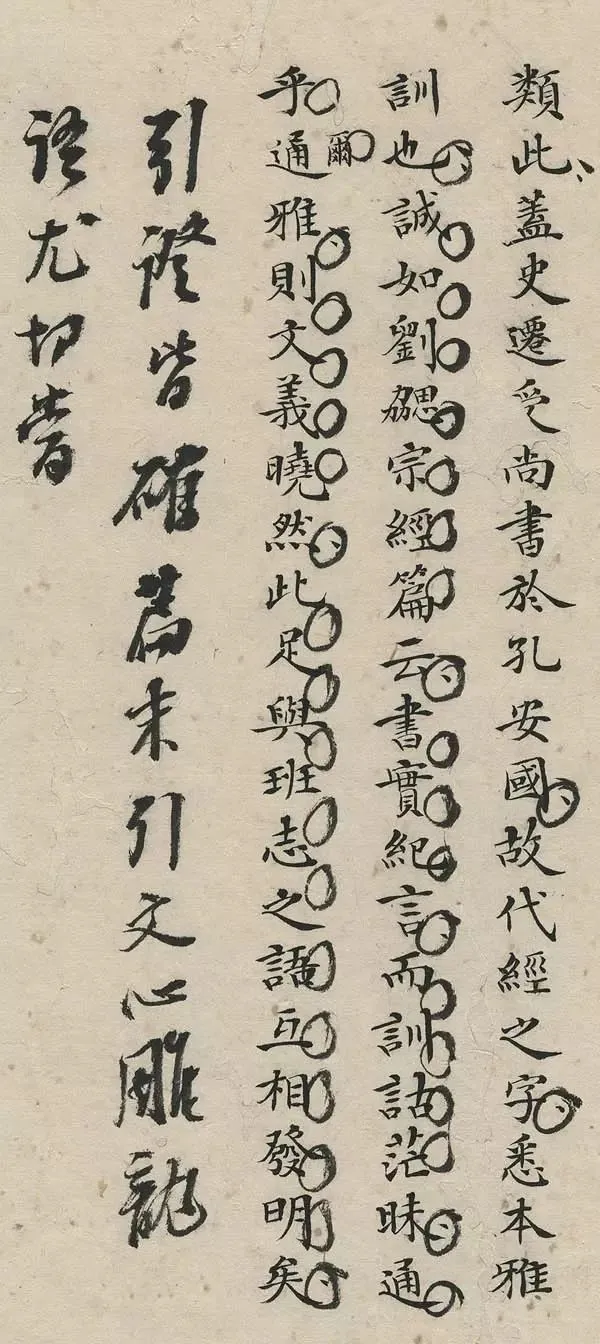 類此蓋史遷受尚書於孔安國故代經之字悉本雅
訓也誠如劉勰宗經篇云書實紀言而訓詁茫昧通
爾
乎通雅則文義曉然此足與班志之語互相發明矣
引證皆確篇末引文心雕龍
語尤切當